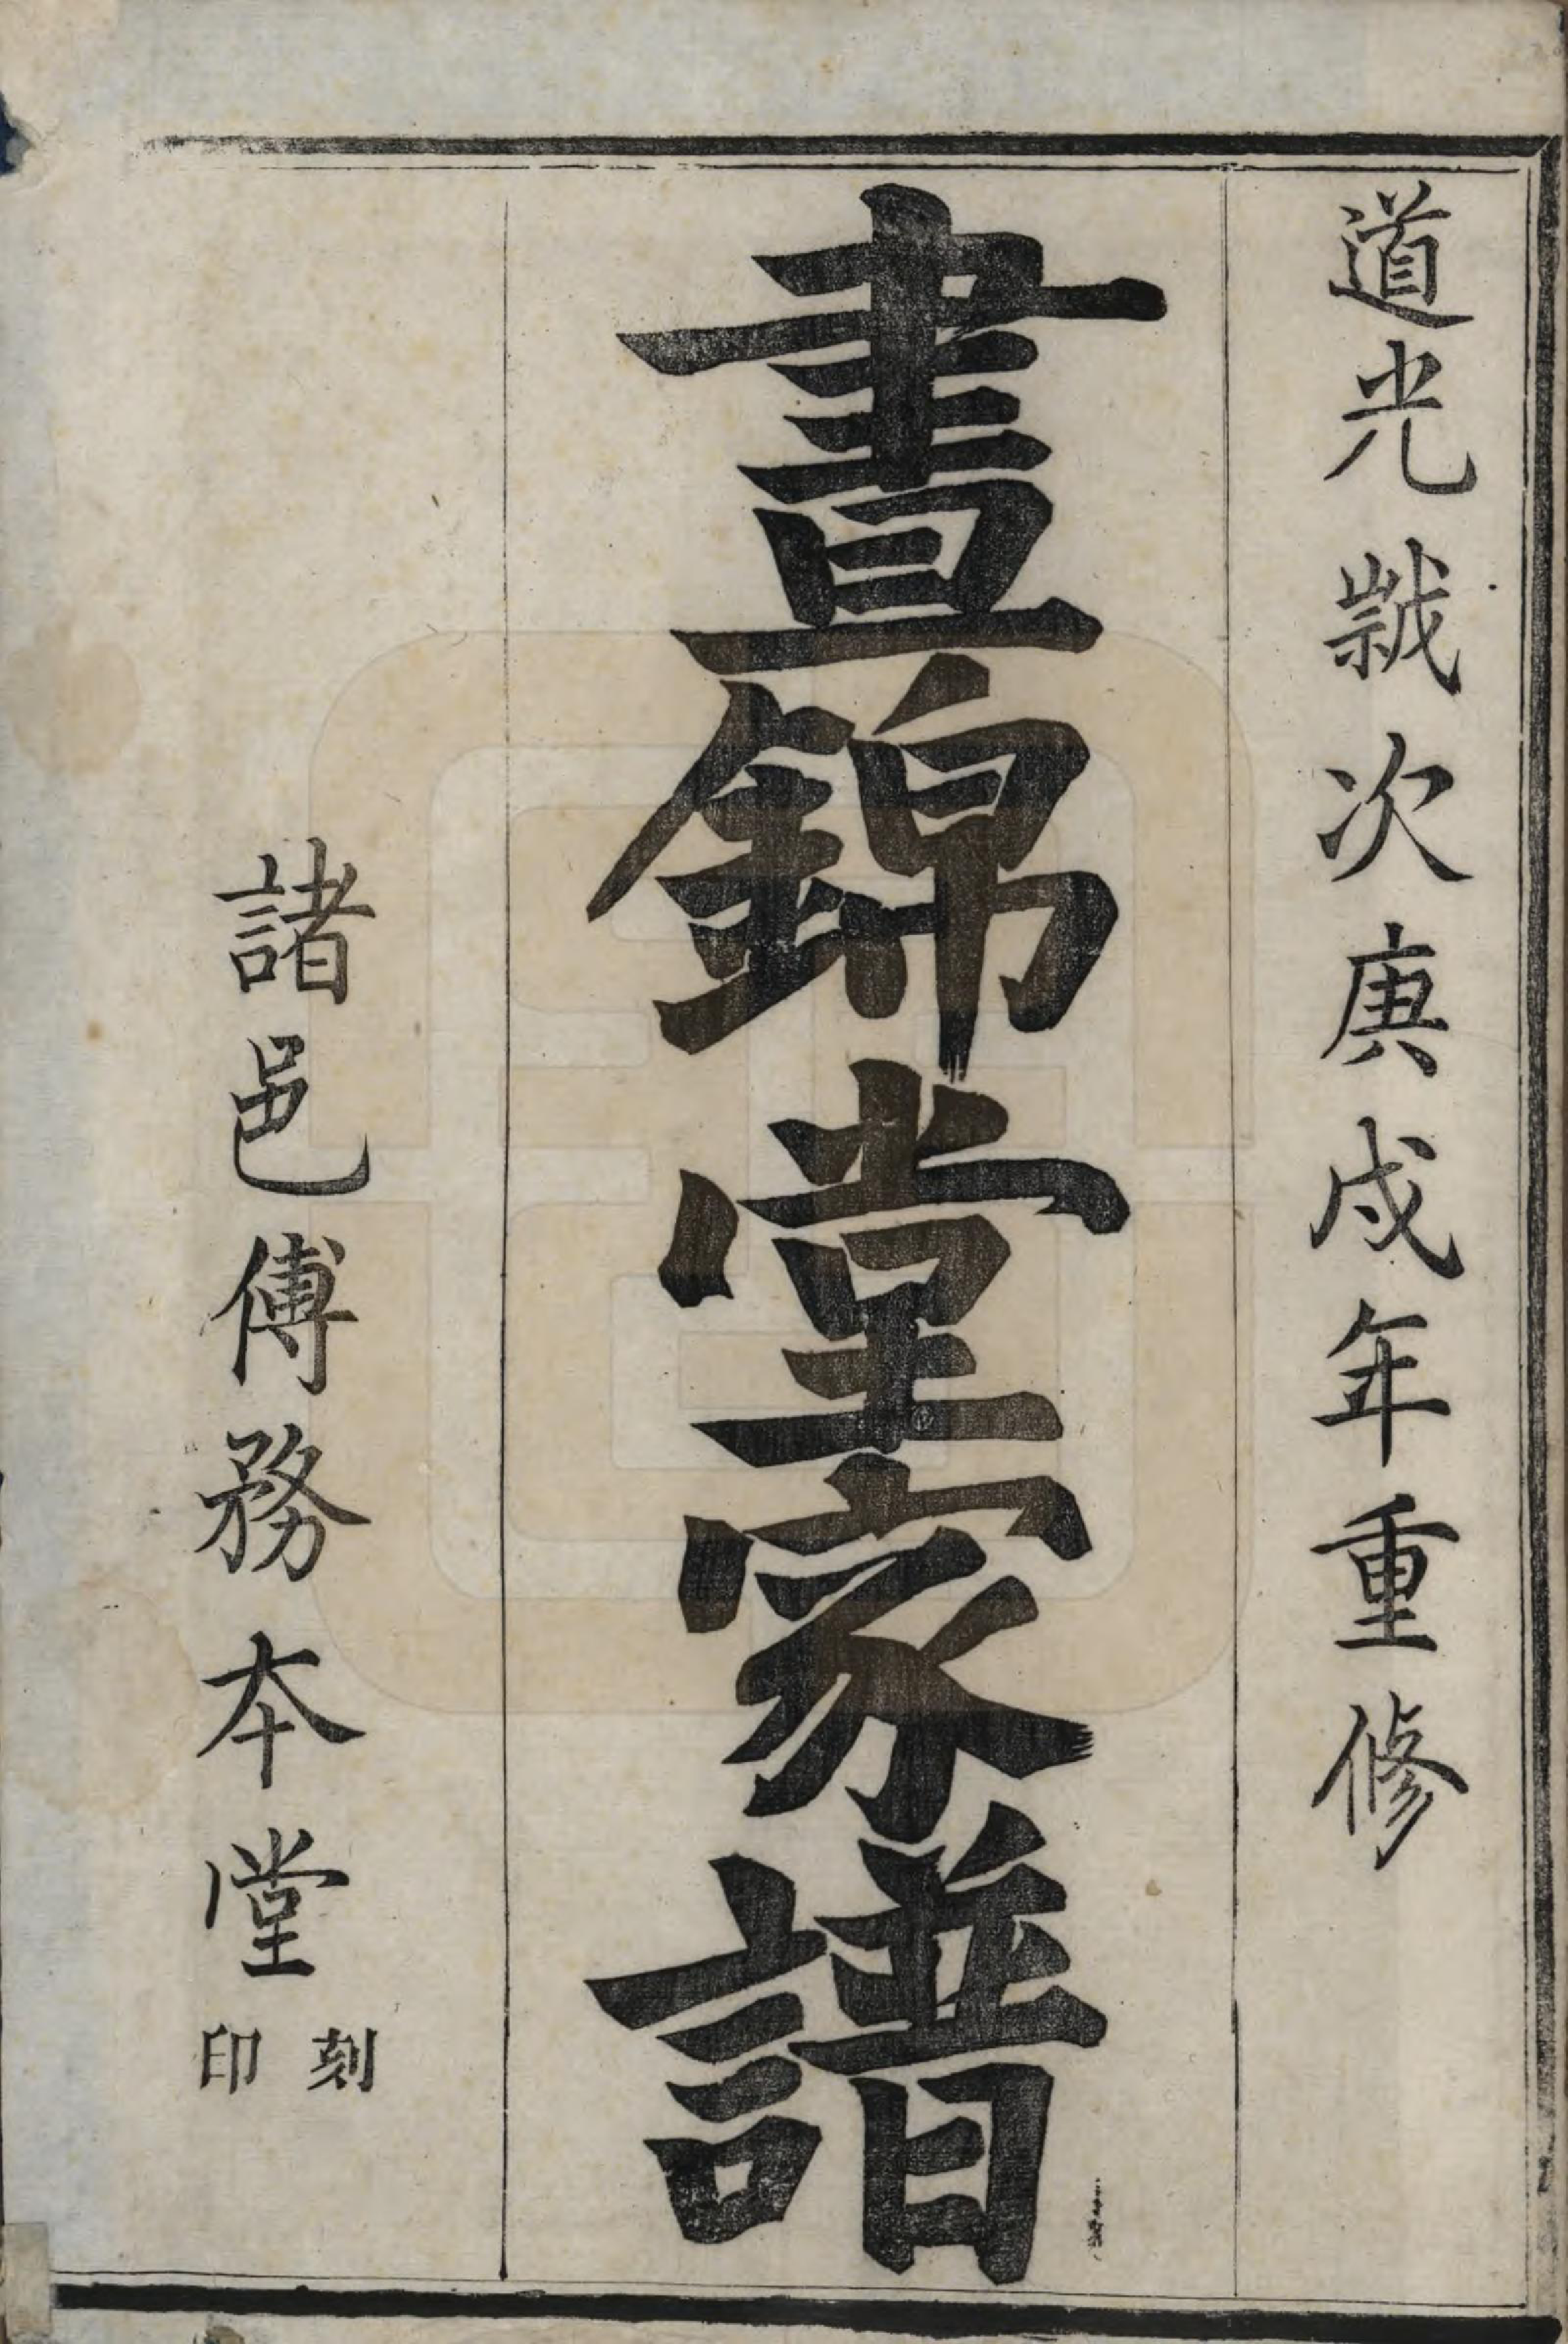 道光歳次庚戌年重修
晝錦堂家譜
諸邑傅務本堂
刻印